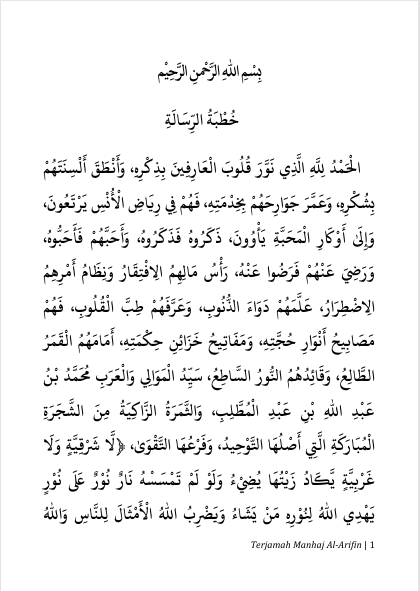 بِسْمِ اللهِ الرَّحْمنِ الرَّحِيْمِ
خُطْبَةُ الرِّسَالَةِ
الْحَمْدُ لِلَّهِ الَّذِي نَوَّرَ قُلُوبَ الْعَارِفِينَ بِذِكْرِهِ، وَأَنْطَقَ أَلْسِنَتَهُمْ
بِشُكْرِهِ، وَعَمَّرَ جَوَارِحَهُمْ بِخِدْمَتِهِ، فَهُمْ فِي رِيَاضِ الْأُنْسِ يَرْتَعُونَ،
وَإِلَى أَوْكَارِ الْمَحَبَّةِ يَأْوُونَ، ذَكَرُوهُ فَذَكَرُوهُ، وَأَحَبَّهُمْ فَأَحَبُّوهُ،
وَرَضِيَ عَنْهُمْ فَرَضُوا عَنْهُ، رَأْسُ مَالِهِمُ الِافْتِقَارُ وَنِظَامُ أَمْرِهِمُ
الِاضْطِرَارُ، عَلَّمَهُمْ دَوَاءَ الذُّنُوبِ، وَعَرَّفَهُمْ طِبَّ الْقُلُوبِ، فَهُمْ
مَصَابِيحُ أَنْوَارِ حُجَّتِهِ، وَمَفَاتِيحُ خَزَائِنِ حِكْمَتِهِ، أَمَامَهُمُ الْقَمَرُ
الطَّالِعُ، وَقَائِدُهُمُ النُّورُ السَّاطِعُ، سَيِّدُ الْمَوَالِي وَالْعَرَبِ مُحَمَّدُ بْنُ
عَبْدِ اللهِ بْنِ عَبْدِ الْمُطَّلِبِ، وَالثَّمَرَةُ الزَّاكِيَةُ مِنَ الشَّجَرَةِ
الْمُبَارَكَةِ الَّتِي أَصْلُهَا التَّوْحِيدُ، وَفَرْعُهَا التَّقْوَى، ﴿لَّا شَرْقِيَّةٍ وَلَا
غَرْبِيَّةٍ يَّكَادُ زَيْتُهَا يُضِيْءُ وَلَوْ لَمْ تَمْسَسْهُ نَارٌ نُوْرٌ عَلَى نُوْرٍ
يَهْدِي اللهُ لِنُوْرِهِ مَنْ يَشَاءُ وَيَضْرِبُ اللهُ الْأَمْثَالَ لِلنَّاسِ وَاللهُ
Terjamah Manhaj Al-Arifin | 1